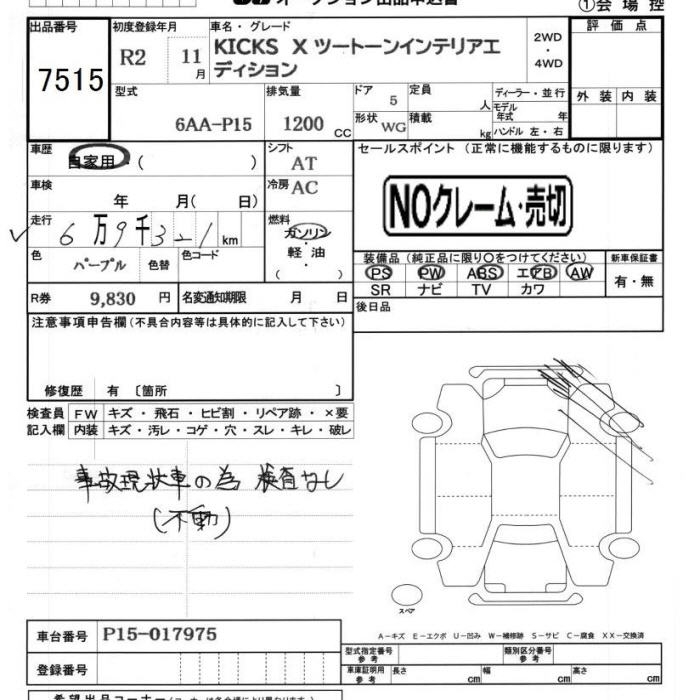 オークション出品申込書
①会場控
出品番号
7515
初度登録年月
R2 11月
車名・グレード
KICKS X ツートーンインテリアエディション
2WD
・
4WD
評価点
外装 内装
型式
6AA-P15
排気量
1200 CC
ドア
5
定員
人
ディーラー・並行
モデル年式 年
形状
WG
積載
kg
ハンドル 左・右
車歴
自家用・( )
シフト
AT
セールスポイント (正常に機能するものに限ります)
NOクレーム・売切
車検
年 月( 日)
冷房
AC
走行
6万9千321km
燃料
ガソリン
・
軽油
( )
色
パープル
色替
色コード
装備品 (純正品に限り○をつけてください)
PS PW ABS エアB AW
SR ナビ TV カワ
新車保証書
有・無
R券
9,830 円
名変通知期限 月 日
後日品
注意事項申告欄(不具合内容等は具体的に記入して下さい)
修復歴 有 〔箇所 〕
検査員記入欄
FW キズ・飛石・ヒビ割・リペア跡・×要
内装 キズ・汚レ・コゲ・穴・スレ・キレ・破レ
事故現状車の為 検査なし
(不動)
スペア
A-キズ E-エクボ U-凹み W-補修跡 S-サビ C-腐食 XX-交換済
車台番号
P15-017975
登録番号
型式指定番号 参考
類別区分番号 参考
車庫証明用 参考
長さ cm 幅 cm 高さ cm